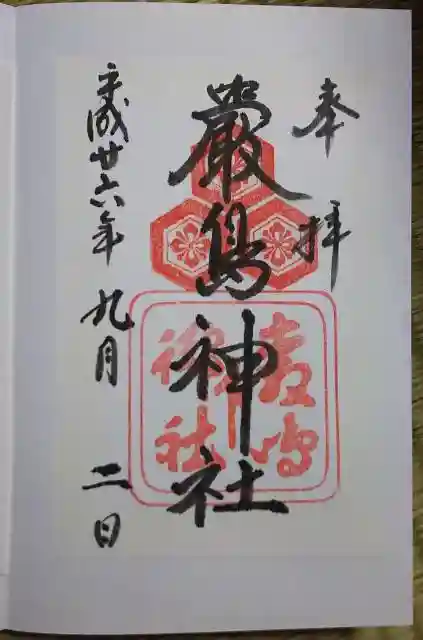 奉拝
嚴島神社
平成廿六年九月二日
嚴島
神社